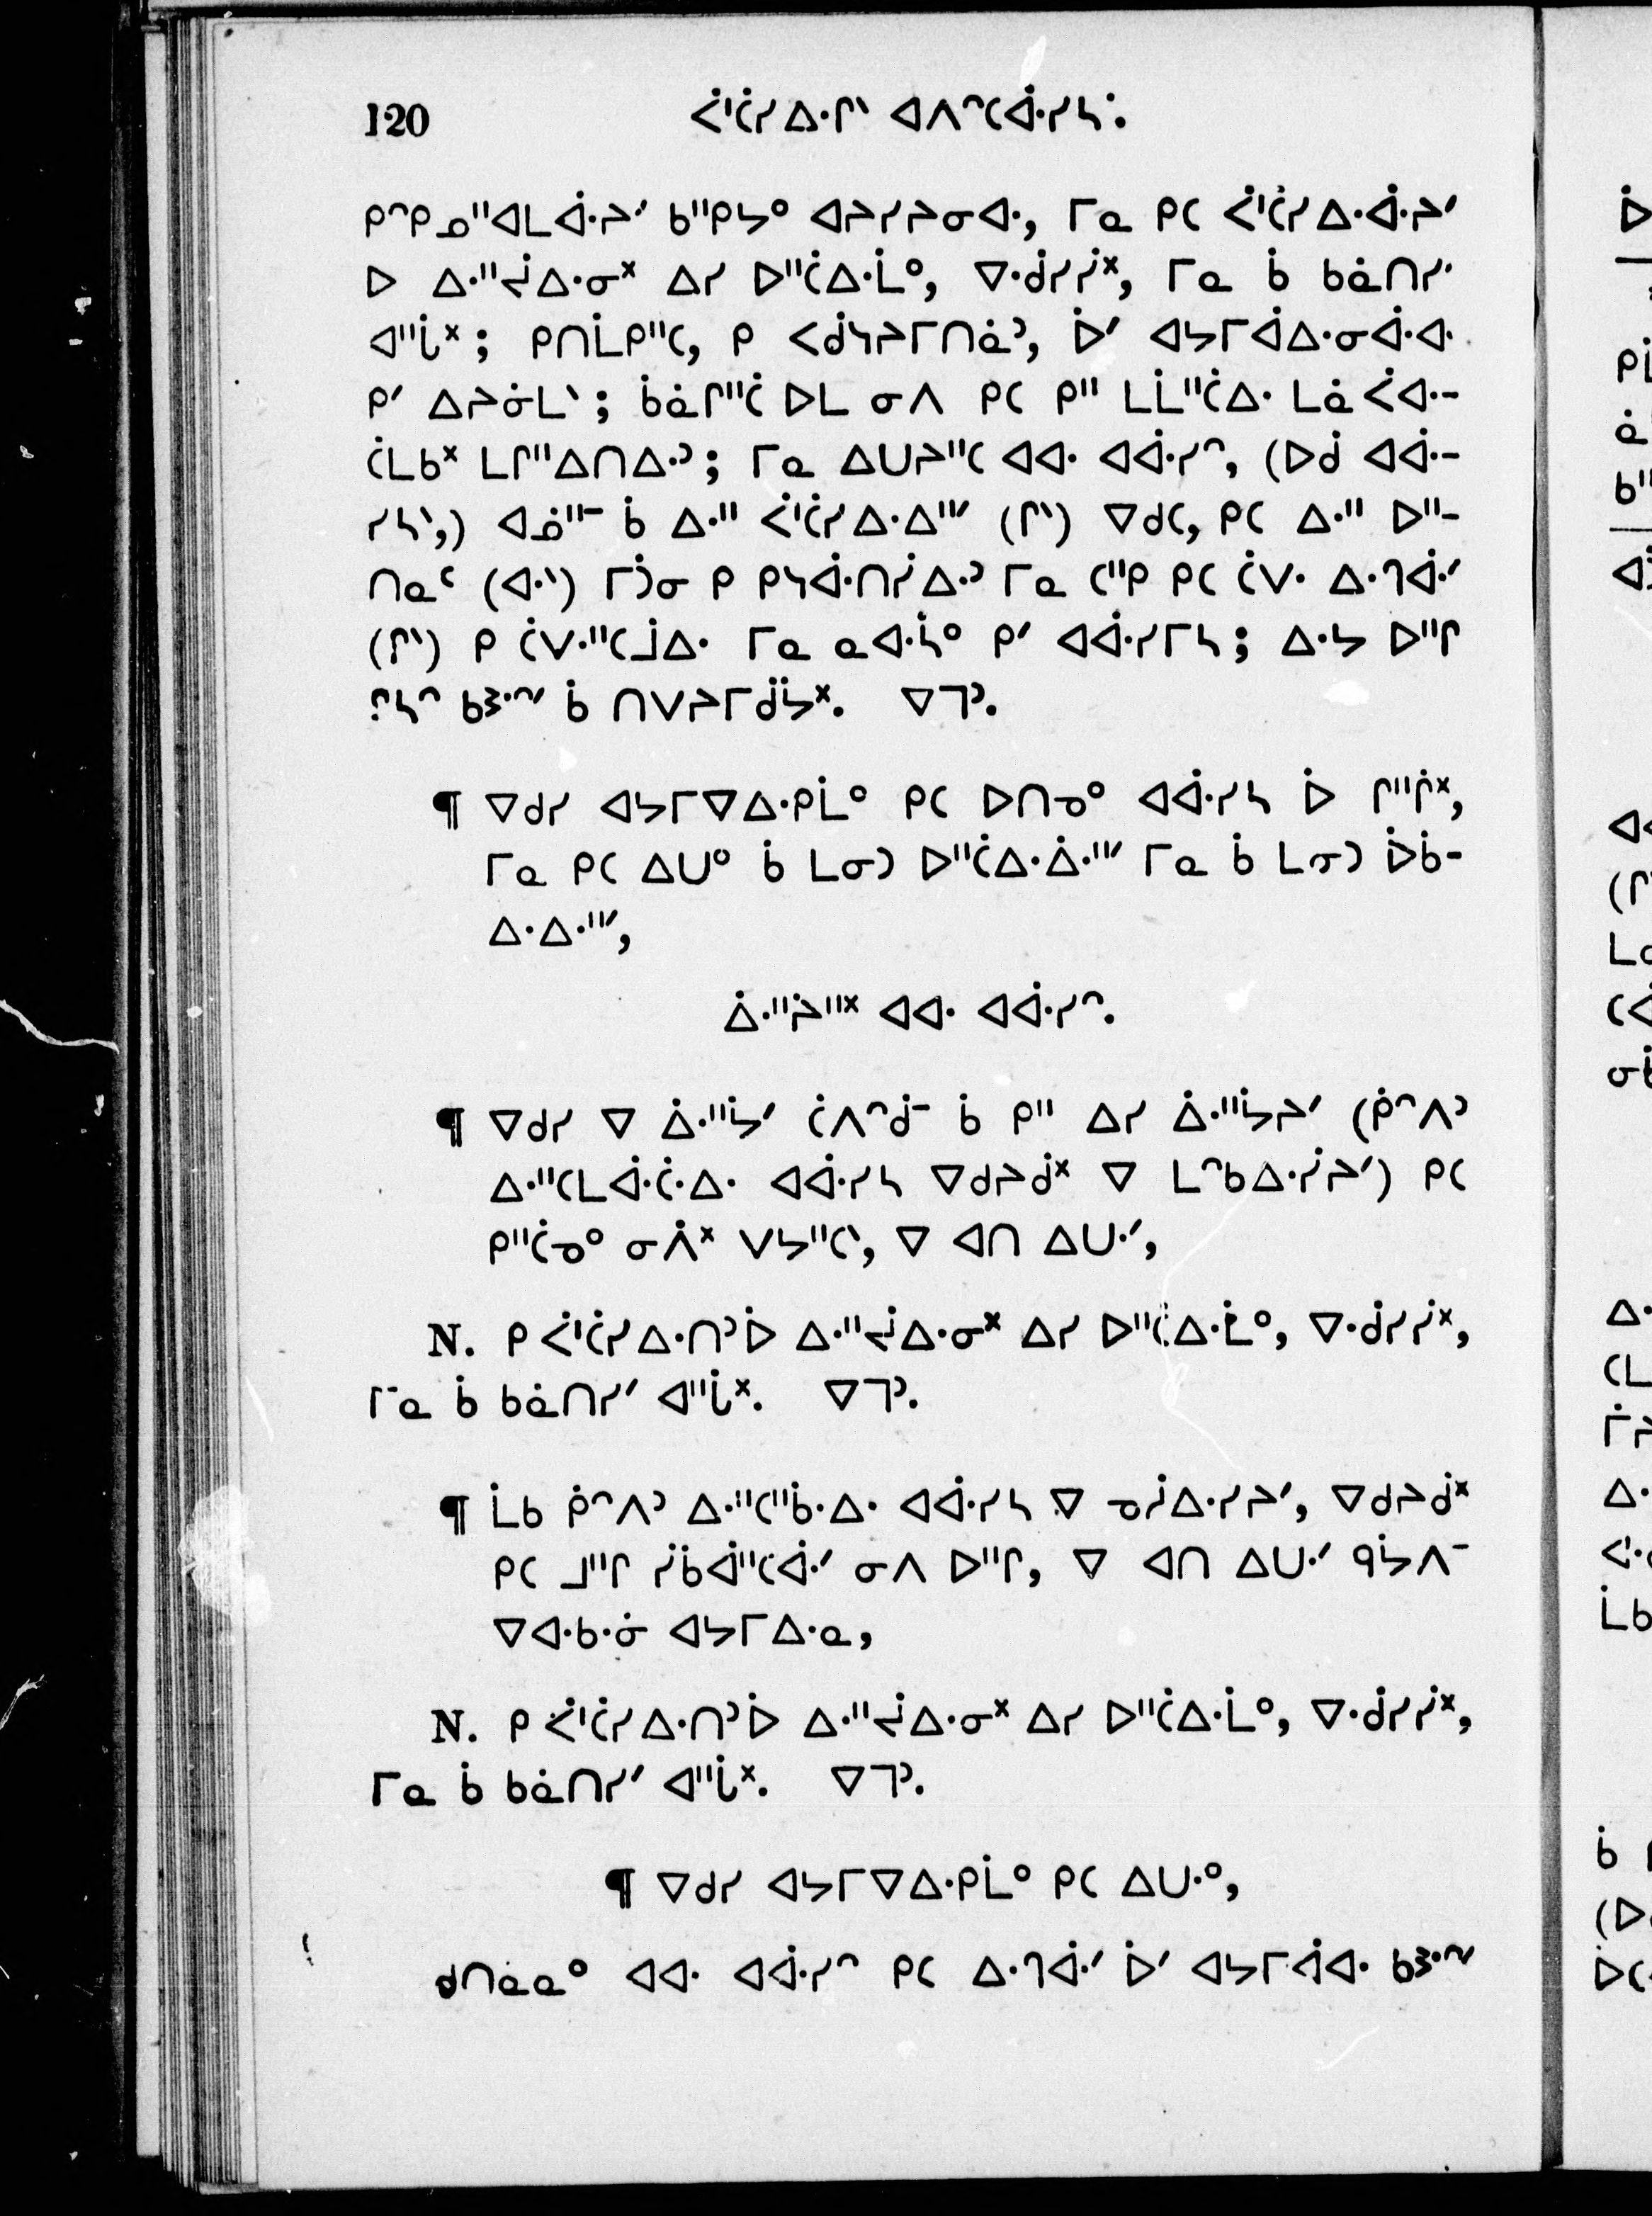 120 ᐹᑊᑖᓯᐃᐧᒋᐠ ᐊᐱᐢᑕᐋᐧᓯᓴᐠ.
ᑭᐢᑭᓄᐦᐊᒪᐋᐧᔨᐟ ᑲᐦᑭᔭᐤ ᐊᔨᓯᔨᓂᐊᐧ, ᒥᓇ ᑭᑕ ᐹᑊᑖᓯᐃᐧᐋᐧᔨᐟ
ᐅ ᐃᐧᐦᔫᐃᐧᓂᕽ ᐃᓯ ᐅᐦᑖᐃᐧᒫᐤ, ᐁᐧᑰᓯᓯᕽ, ᒥᓇ ᑳ ᑲᓈᑎᓯᐟ
ᐊᐦᒑᕽ ; ᑭᑎᒫᑭᐦᑕ, ᑭ ᐸᑰᓭᔨᒥᑎᓈᐣ, ᐆᐟ ᐊᔭᒥᐋᐃᐧᓂᐋᐧᐊᐧ
ᑭᐟ ᐃᔨᓃᒪᐠ ; ᑳᓈᒋᐦᑖ ᐅᒪ ᓂᐱ ᑭᑕ ᑭᐦ ᒪᒫᐦᑖᐃᐧ ᒪᓈᐹᐊᐧ-
ᑖᒪᑲᕽ ᒪᒋᐦᐃᑎᐃᐧᐣ ; ᒥᓇ ᐃᑌᔨᐦᑕ ᐊᐊᐧ ᐊᐋᐧᓯᐢ, (ᐅᑰ ᐊᐋᐧ-
ᓯᓴᐠ,) ᐊᓅᐦᐨ ᑳ ᐃᐧᐦ ᐹᑊᑖᓯᐃᐧᐃᐦᐟ (ᒋᐠ) ᐁᑯᑕ, ᑭᑕ ᐃᐧᐦ ᐅᐦ-
ᑎᓇᒼ (ᐊᐧᐠ) ᒥᑑᓂ ᑭ ᑭᓴᐋᐧᑎᓰᐃᐧᐣ ᒥᓇ ᑕᐦᑭ ᑭᑕ ᑖᐯᐧ ᐃᐧᒉᐋᐧᐟ
(ᒋᐠ) ᑭ ᑖᐯᐧᐦᑕᒨᐃᐧ ᒥᓇ ᓇᐊᐧᓵᐤ ᑭᐟ ᐊᐋᐧᓯᒥᓴ ; ᐃᐧᔭ ᐅᐦᒋ
ᒋᓴᐢ ᑲᕒᐊᐧᐢᐟ ᑳ ᑎᐯᔨᒥᑰᔮᕽ. ᐁᒣᐣ.

¶ ᐁᑯᓯ ᐊᔭᒥᐁᐃᐧᑭᒫᐤ ᑭᑕ ᐅᑎᓀᐤ ᐊᐋᐧᓯᓴ ᐆ ᒋᐦᒌᕽ,
ᒥᓇ ᑭᑕ ᐃᑌᐤ ᑳ ᒪᓂᑐ ᐅᐦᑖᐃᐧᐄᐧᐦᐟ ᒥᓇ ᑳ ᒪᓂᑐ ᐆᑳ-
ᐃᐧᐃᐧᐦᐟ,
ᐄᐧᐦᔩᐦᕽ ᐊᐊᐧ ᐊᐋᐧᓯᐢ.

¶ ᐁᑯᓯ ᐁ ᐄᐧᐦᔮᐟ ᑖᐱᐢᑰᐨ ᑳ ᑭᐦ ᐃᓯ ᐄᐧᐦᔮᔨᐟ (ᑮᐢᐱᐣ
ᐃᐧᐦᑕᒪᐋᐧᑖᐧᐃᐧ ᐊᐋᐧᓯᓴ ᐁᑯᔨᑰᕽ ᐁ ᒪᐢᑲᐃᐧᓰᔨᐟ) ᑭᑕ
ᑭᐦᑖᓀᐤ ᓂᐲᕽ ᐯᔭᐦᑕᐠ, ᐁ ᐊᑎ ᐃᑌᐧᐟ,
N. ᑭ ᐹᑊᑖᓯᐃᐧᑎᐣ ᐆ ᐃᐧᐦᔫᐃᐧᓂᕽ ᐃᓯ ᐅᐦᑖᐃᐧᒫᐤ, ᐁᐧᑰᓯᓯᕽ,
ᒥᓇ ᑳ ᑲᓈᑎᓯᐟ ᐊᐦᒑᕽ. ᐁᒣᐣ.

¶ ᒫᑲ ᑮᐢᐱᐣ ᐃᐧᐦᑕᐦᑳᐧᐃᐧ ᐊᐋᐧᓯᓴ ᐁ ᓀᓲᐃᐧᓯᔨᐟ, ᐁᑯᔨᑰᕽ
ᑭᑕ ᒧᐦᒋ ᓰᑳᐋᐦᑕᐋᐧᐟ ᓂᐱ ᐅᐦᒋ, ᐁ ᐊᑎ ᐃᑌᐧᐟ ᑫᔮᐱᐨ
ᐁᐊᐧᑲᐧᓃ ᐊᔭᒥᐃᐧᓇ,
N. ᑭ ᐹᑊᑖᓯᐃᐧᑎᐣ ᐆ ᐃᐧᐦᔫᐃᐧᓂᕽ ᐃᓯ ᐅᐦᑖᐃᐧᒫᐤ, ᐁᐧᑰᓯᓯᕽ,
ᒥᓇ ᑳ ᑲᓈᑎᓯᐟ ᐊᐦᒑᕽ. ᐁᒣᐣ.

¶ ᐁᑯᓯ ᐊᔭᒥᐁᐃᐧᑭᒫᐤ ᑭᑕ ᐃᑌᐧᐤ,
ᑯᑎᓈᓇᐤ ᐊᐊᐧ ᐊᐋᐧᓯᐢ ᑭᑕ ᐃᐧᒉᐋᐧᐟ ᐆᐟ ᐊᔭᒥᐋᐊᐧ ᑲᕒᐊᐧᐢᐟ